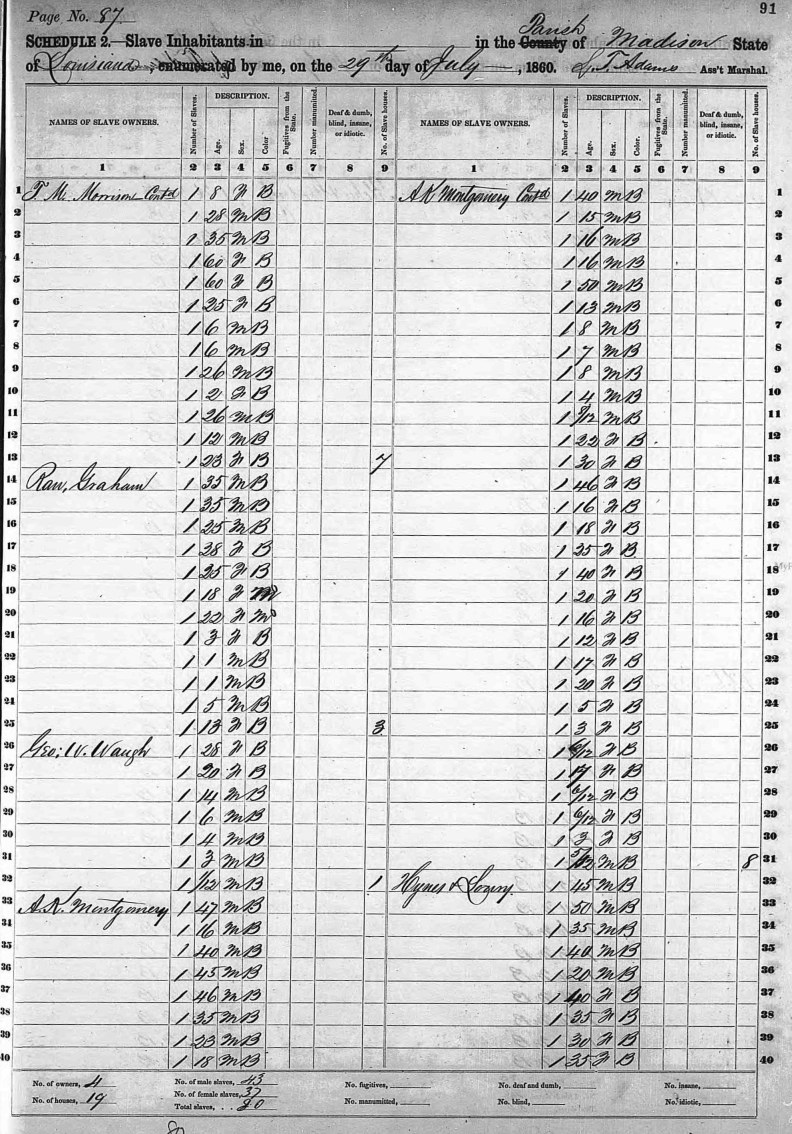 Page No. 87
91
SCHEDULE 2.—Slave Inhabitants in in the County Parish of Madison State
of Louisiana, enumerated by me, on the 29th day of July, 1860. T. Adams Ass't Marshal.
NAMES OF SLAVE OWNERS. Number of Slaves. DESCRIPTION. Age. Sex. Color Fugitives from the State. Number manumitted. Deaf & dumb, blind, insane, or idiotic. No. of Slave houses. NAMES OF SLAVE OWNERS. Number of Slaves. DESCRIPTION. Age. Sex. Color. Fugitives from the State. Number manumitted. Deaf & dumb, blind, insane, or idiotic. No. of Slave houses.
1 2 3 4 5 6 7 8 9 1 2 3 4 5 6 7 8 9
1 T. M. Morrison Contd 1 8 F B A K Montgomery Contd 1 40 M B 1
2 1 28 M B 1 15 M B 2
3 1 35 M B 1 16 M B 3
4 1 60 F B 1 16 M B 4
5 1 60 F B 1 50 M B 5
6 1 25 F B 1 13 M B 6
7 1 6 M B 1 8 M B 7
8 1 6 M B 1 7 M B 8
9 1 26 M B 1 8 M B 9
10 1 2 F B 1 4 M B 10
11 1 26 M B 1 M B 11
12 1 12 M B 1 22 F B 12
13 1 23 F B 7 1 30 F B 13
14 Graham 1 35 M B 1 46 F B 14
15 1 35 M B 1 16 F B 15
16 1 25 M B 1 18 F B 16
17 1 28 F B 1 25 F B 17
18 1 25 F B 1 40 F B 18
19 1 18 F M 1 20 F B 19
20 1 22 F M 1 16 F B 20
21 1 3 F B 1 12 F B 21
22 1 1 M B 1 17 F B 22
23 1 1 M B 1 20 F B 23
24 1 5 M B 1 5 F B 24
25 1 13 F B 3 1 3 F B 25
26 Geo; W. Waugh 1 28 F B 1 F B 26
27 1 20 F B 1 17 F B 27
28 1 14 M B 1 6/12 F B 28
29 1 6 M B 1 6/12 F B 29
30 1 4 M B 1 3 F B 30
31 1 3 M B 1 M B 8 31
32 1 1/12 M B 1 Hynes & 1 45 M B 32
33 A. K. Montgomery 1 47 M B 1 50 M B 33
34 1 16 M B 1 35 M B 34
35 1 40 M B 1 40 M B 35
36 1 45 M B 1 20 M B 36
37 1 46 M B 1 40 F B 37
38 1 35 M B 1 35 F B 38
39 1 23 M B 1 30 F B 39
40 1 18 M B 1 35 F B 40
No. of owners, 4 No. of male slaves, 43 No. fugitives, No. deaf and dumb, No. insane,
No. of houses, 19 No. of female slaves, 37 No. manumitted, No. blind, No. idiotic,
Total slaves, 80
80